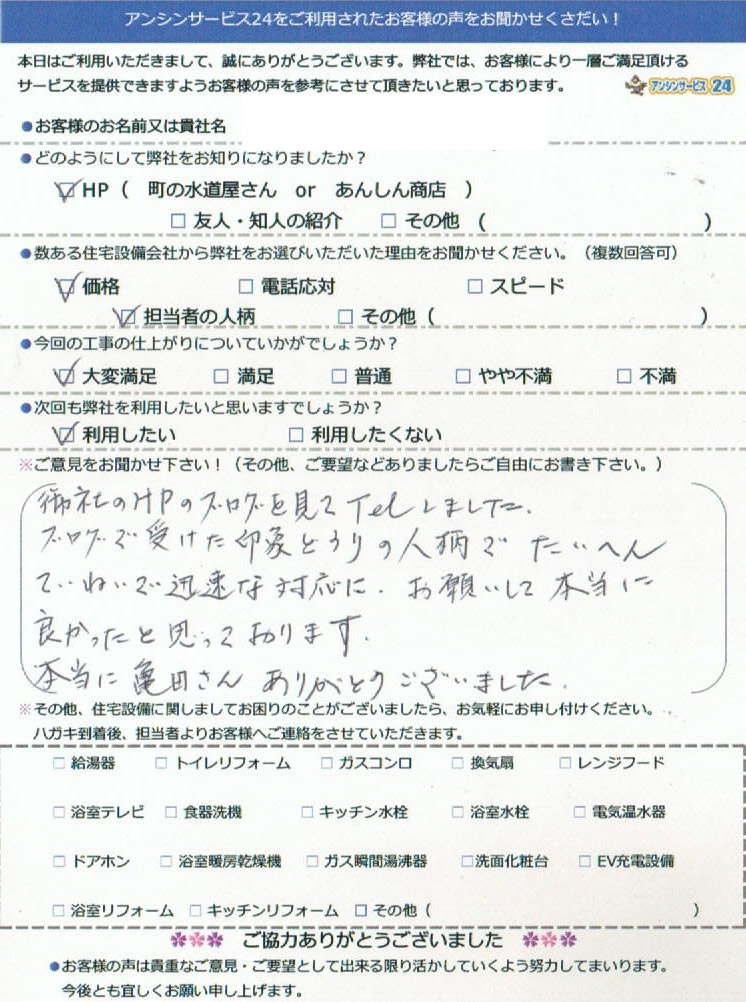 アンシンサービス24をご利用されたお客様の声をお聞かせくさだい！
本日はご利用いただきまして、誠にありがとうございます。弊社では、お客様により一層ご満足頂ける
サービスを提供できますようお客様の声を参考にさせて頂きたいと思っております。
アンシンサービス24
●お客様のお名前又は貴社名
●どのようにして弊社をお知りになりましたか？
☑HP（　町の水道屋さん　or　あんしん商店　）
□ 友人・知人の紹介　□ その他　(　)
●数ある住宅設備会社から弊社をお選びいただいた理由をお聞かせください。（複数回答可）
☑価格　□ 電話応対　□ スピード
☑担当者の人柄　□ その他（　）
●今回の工事の仕上がりについていかがでしょうか？
☑大変満足　□ 満足　□ 普通　□ やや不満　□ 不満
●次回も弊社を利用したいと思いますでしょうか？
☑利用したい　□ 利用したくない
※ご意見をお聞かせ下さい！（その他、ご要望などありましたらご自由にお書き下さい。）
御社のHPのブログを見てTelしました.
ブログで受けた印象どうりの人柄で たいへん
ていねいで迅速な対応に. お願いして本当に
良かったと思っております.
本当に亀田さん ありがとうございました.
※その他、住宅設備に関しましてお困りのことがございましたら、お気軽にお申し付けください。
ハガキ到着後、担当者よりお客様へご連絡をさせていただきます。
□ 給湯器　□ トイレリフォーム　□ ガスコンロ　□ 換気扇　□ レンジフード
□ 浴室テレビ　□ 食器洗機　□ キッチン水栓　□ 浴室水栓　□ 電気温水器
□ ドアホン　□ 浴室暖房乾燥機　□ ガス瞬間湯沸器　□洗面化粧台　□ EV充電設備
□ 浴室リフォーム　□ キッチンリフォーム　□ その他（　）
ご協力ありがとうございました
●お客様の声は貴重なご意見・ご要望として出来る限り活かしていくよう努力してまいります。
今後とも宜しくお願い申し上げます。